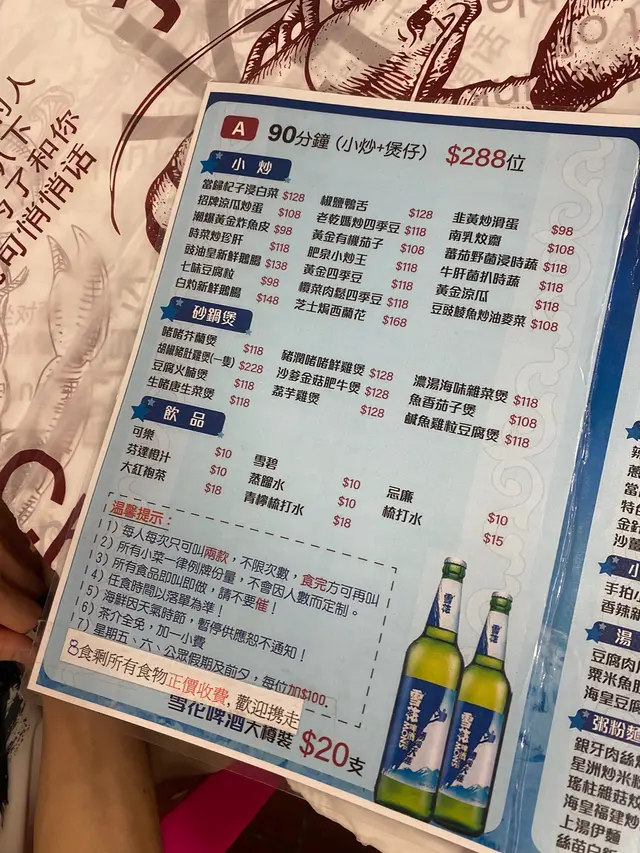 的人
八下
为了和你
可悄悄话
A 90分鐘(小炒+煲仔) $288位
小炒
當歸杞子浸白菜 $128
招牌涼瓜炒蛋 $108
潮爆黃金炸魚皮 $98
時菜炒珍肝 $118
豉油皇新鮮鵝腸 $138
七味豆腐粒 $98
白灼新鮮鵝腸 $148
椒鹽鴨舌 $128
老乾媽炒四季豆 $118
黃金有機茄子 $108
肥泉小炒王 $118
黃金四季豆 $118
欖菜肉鬆四季豆 $118
芝士焗西蘭花 $168
韭黃炒滑蛋 $98
南乳炆齋 $108
蕃茄野菌浸時蔬 $118
牛肝菌扒時蔬 $118
黃金涼瓜 $118
豆豉鯪魚炒油麥菜 $108
砂鍋煲
啫啫芥蘭煲 $118
胡椒豬肚雞煲(一隻) $228
豆腐火腩煲 $118
生啫唐生菜煲 $118
豬潤啫啫鮮雞煲 $128
沙爹金菇肥牛煲 $128
荔芋雞煲 $128
濃湯海味雜菜煲 $118
魚香茄子煲 $108
鹹魚雞粒豆腐煲 $118
飲品
可樂 $10
芬達橙汁 $10
大紅袍茶 $18
雪碧 $10
蒸餾水 $10
青檸梳打水 $18
忌廉 $10
梳打水 $15
溫馨提示：
1) 每人每次只可叫兩款，不限次數，食完方可再叫
2) 所有小菜一律例牌份量，不會因人數而定制。
3) 所有食品即叫即做，請不要催！
4) 任食時間以落單為準！
5) 海鮮因天氣時節，暫停供應恕不通知！
6) 茶介全免，加一小費
7) 星期五、六、公眾假期及前夕，每位加$100.
8食剩所有食物正價收費, 歡迎携走
雪花啤酒大樽裝 $20支
雪花
雪花
手拍小
香辣
湯
豆腐肉
粟米魚
海皇豆腐
粥粉麵
銀牙肉絲
星洲炒米
瑤柱雜菇炒
海皇福建炒
上湯伊麵
絲苗白飯